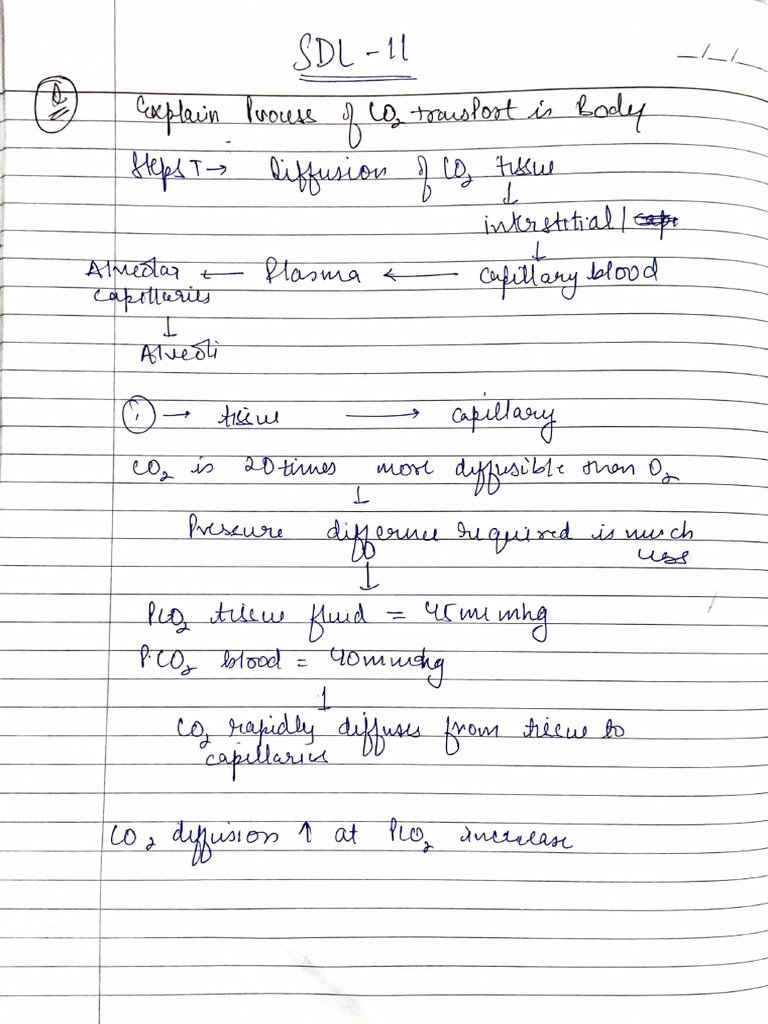 SDL - 11
_/_/_
Q
Explain Process of CO₂ transport is Body
Steps T → Diffusion of CO₂ tissue
↓
interstitial /
↓
Alveolar ← Plasma ← capillary blood
capillaries
↓
Alveoli
① → tissue → capillary
CO₂ is 20 times more diffusible than O₂
↓
Pressure difference required is much
less
↓
PCO₂ tissue fluid = 45 mmhg
P.CO₂ blood = 40mmhg
↓
CO₂ rapidly diffuses from tissue to
capillaries
CO₂ diffusion ↑ at PCO₂ increase